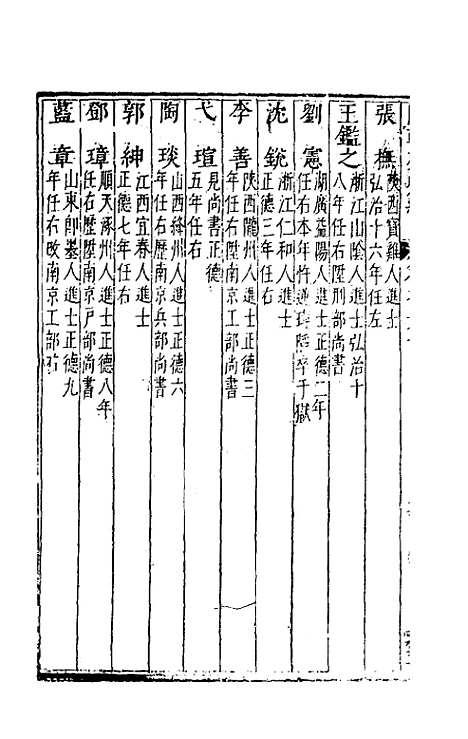 張 撫 陝西寶雞人進士
弘治十六年任左
王鑑之 浙江山陰人進士弘治十
八年任右陞刑部尚書
劉 憲 湖廣益陽人進士正德二年
任右本年忤逆瑾陞卒于獄
沈 銳 浙江仁和人進士
正德三年任右
李 善 陝西隴州人進士正德三
年任右陞南京工部尚書
弋 瑄 見尚書正德
五年任右
陶 琰 山西絳州人進士正德六
年任右歷南京兵部尚書
郭 紳 江西宜春人進士
正德七年任右
鄧 璋 順天涿州人進士正德八年
任右歷陞南京戶部尚書
藍 章 山東即墨人進士正德九
年任右改南京工部右